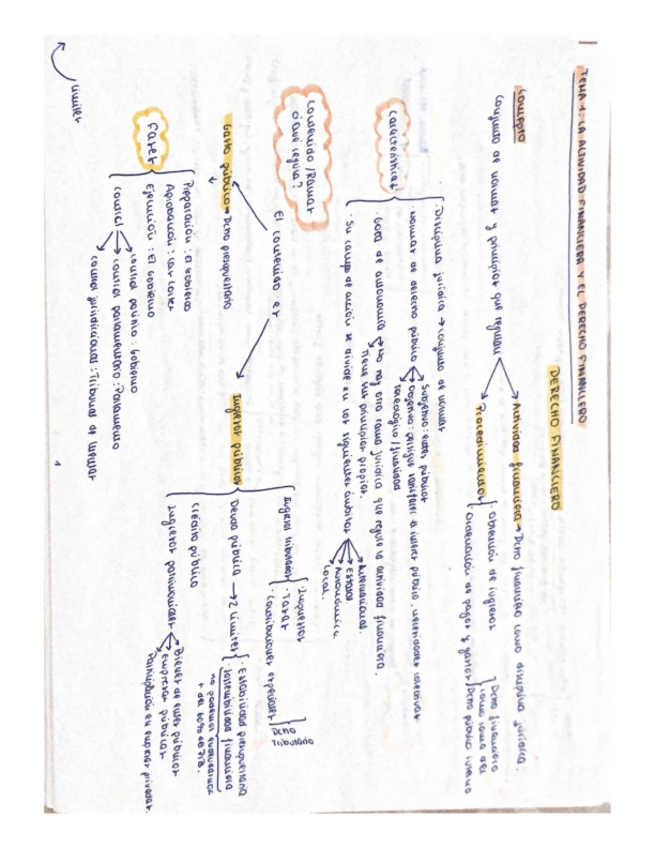 TEMA 1: LA ACTIVIDAD FINANCIERA Y EL DERECHO FINANCIERO
DERECHO FINANCIERO
Concepto
Conjunto de normas y principios que regulan
Actividad financiera → Dcho financiero como disciplina jurídica.
Procedimientos
· Obtención de ingresos
· Ordenación de pagos y gastos
Dcho financiero
como rama del
Dcho público interno
Características
· Disciplina jurídica → conjunto de normas
· Normas de derecho público
Subjetivo: entes públicos
Objetivo: persigue satisfacer el interés público, necesidades colectivas
Teleológico / finalidad
· Goza de autonomía
No hay otra rama jurídica que regule la actividad financiera.
Tiene sus principios propios.
· Su campo de acción se divide en los siguientes ámbitos
Internacional.
Estatal.
Autonómica.
Local.
Contenido / Ramas
o ¿qué regula?
El contenido es
Gasto público → Dcho presupuestario
Fases
Preparación: el Gobierno
Aprobación: las Cortes
Ejecución: El Gobierno
Control
control político: Gobierno
control parlamentario: Parlamento
control jurisdiccional: Tribunal de Cuentas
Ingresos públicos
Ingresos tributarios
· Impuestos
· Tasas
· Contribuciones especiales
Dcho
Tributario
Deuda pública → 2 límites
· Estabilidad presupuestaria
· Sostenibilidad financiera
no podemos endeudarnos
+ del 60% del PIB.
Crédito público
Ingresos patrimoniales
Bienes de entes públicos
Empresas públicas
Participación en empresas privadas.
límites
1